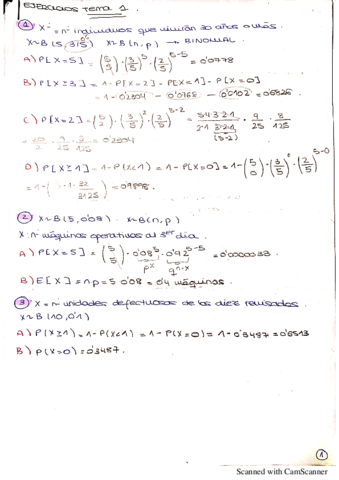 EJERCICIOS TEMA 1.
① X = nº individuos que vivirán 30 años o más.
X~B(5, 3/5) X~B(n,p) → BINOMIAL
A) P[X=5] = (5 5) · (3/5)^5 · (2/5)^5-5 = 0'0778
B) P[X≥3] = 1 - P[X=2] - P[X=1] - P[X=0]
= 1 - 0'2304 - 0'0768 - 0'0102 = 0'6826
C) P[X=2] = (5 2) · (3/5)^2 · (2/5)^5-2 = 5·4·3·2·1 / 2·1 (3·2·1) · 9/25 · 8/125
= 20/2 · 9/25 · 8/125 = 0'2304
D) P[X≥1] = 1 - P(X<1) = 1 - P[X=0] = 1 - (5 0) · (3/5)^0 · (2/5)^5-0
= 1 - (1 · 1 · 32/3125) = 0'9898.
② X~B(5, 0'08) X~B(n,p)
X: nº máquinas operativas al 3er día.
A) P[X=5] = (5 5) · 0'08^5 · 0'92^5-5 = 0'0000033
p^x q^n-x
B) E[X] = n·p = 5·0'08 = 0'4 máquinas.
③ X = nº unidades defectuosas de las diez revisadas.
X~B(10, 0'1)
A) P(X≥1) = 1 - P(X<1) = 1 - P(X=0) = 1 - 0'3487 = 0'6513
B) P(X=0) = 0'3487.
①
Scanned with CamScanner